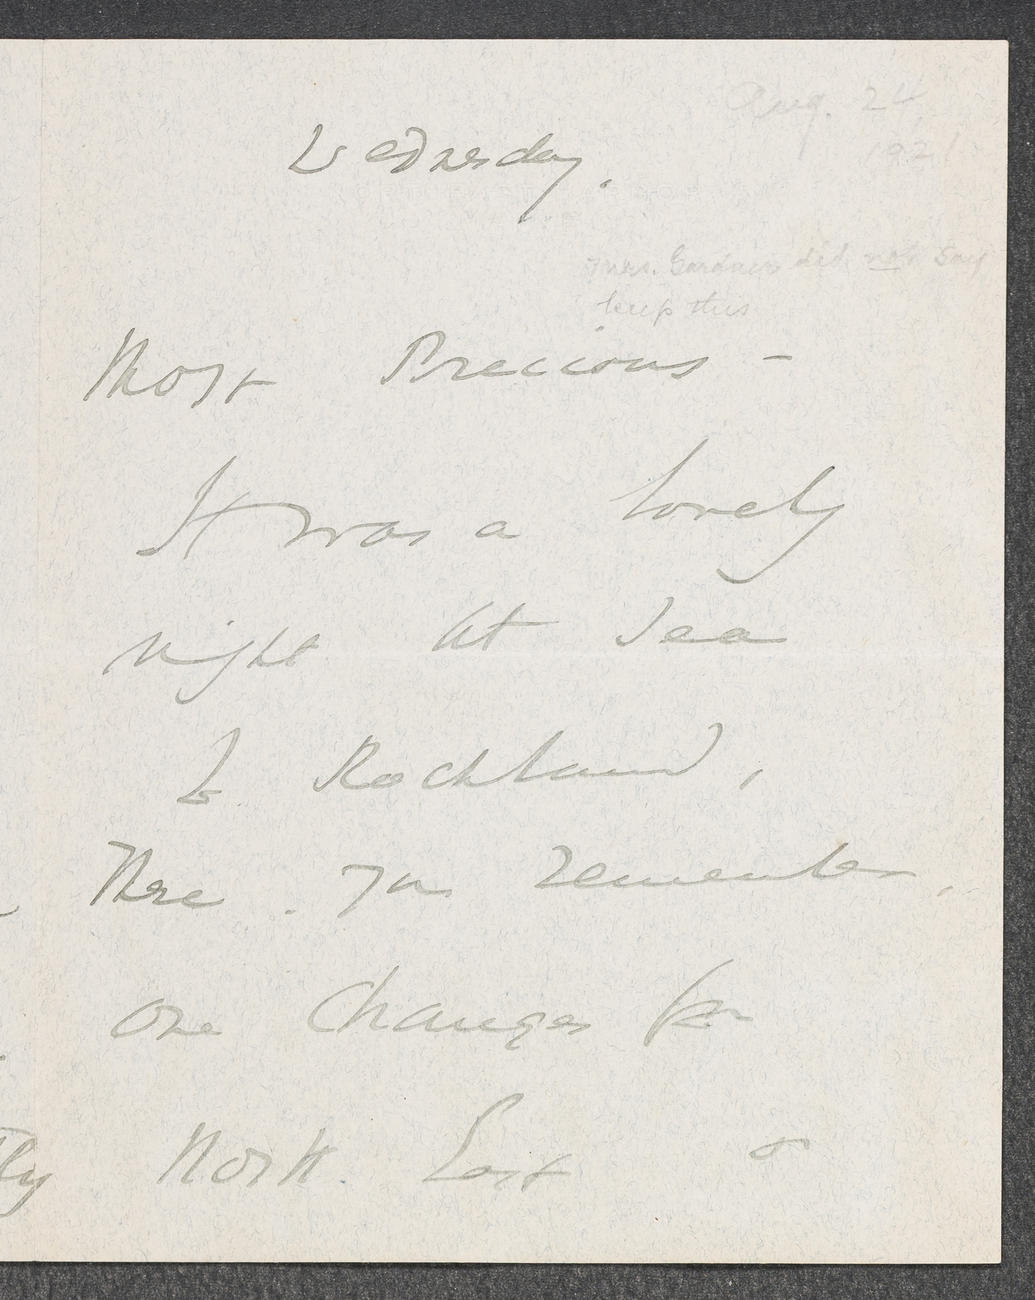 Aug. 24
1921
Wednesday.
Mrs. Gardner did not say
keep this
Most Precious –
It was a lovely
night at Sea
to Rockland,
There. you remember,
one changes for
North. East